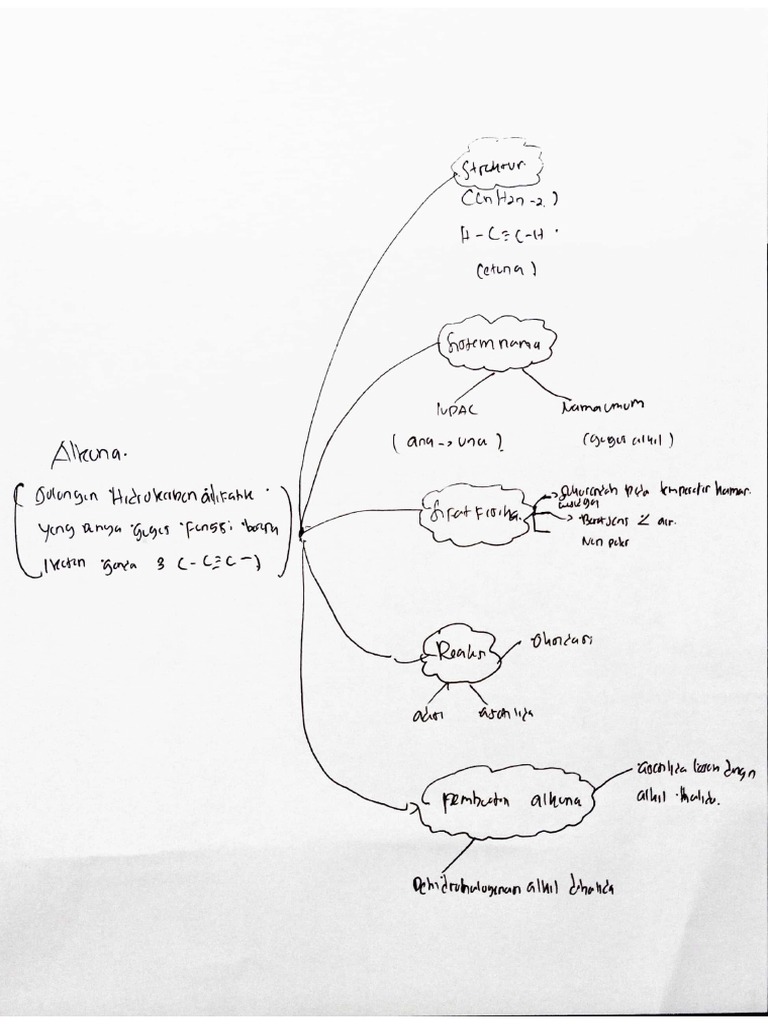 Struktur
(CnH2n-2)
H-C≡C-H
(etuna)
Sistem nama
IUPAC
Nama umum
(ana → una)
(gugus alkil)
Alkuna.
(Golongan Hidrokarbon alifatik
yang punya gugus fungsi berupa
Ikatan ganda 3 (-C≡C-)
Sifat Fisika.
pada temperatur kamar.
Berat jenis < air.
Non polar
Reaksi
Oksidasi
adisi
asetilida
Pembuatan alkuna
asetilida dengan
alkil halida.
Dehidrohalogenan alkil dihalida